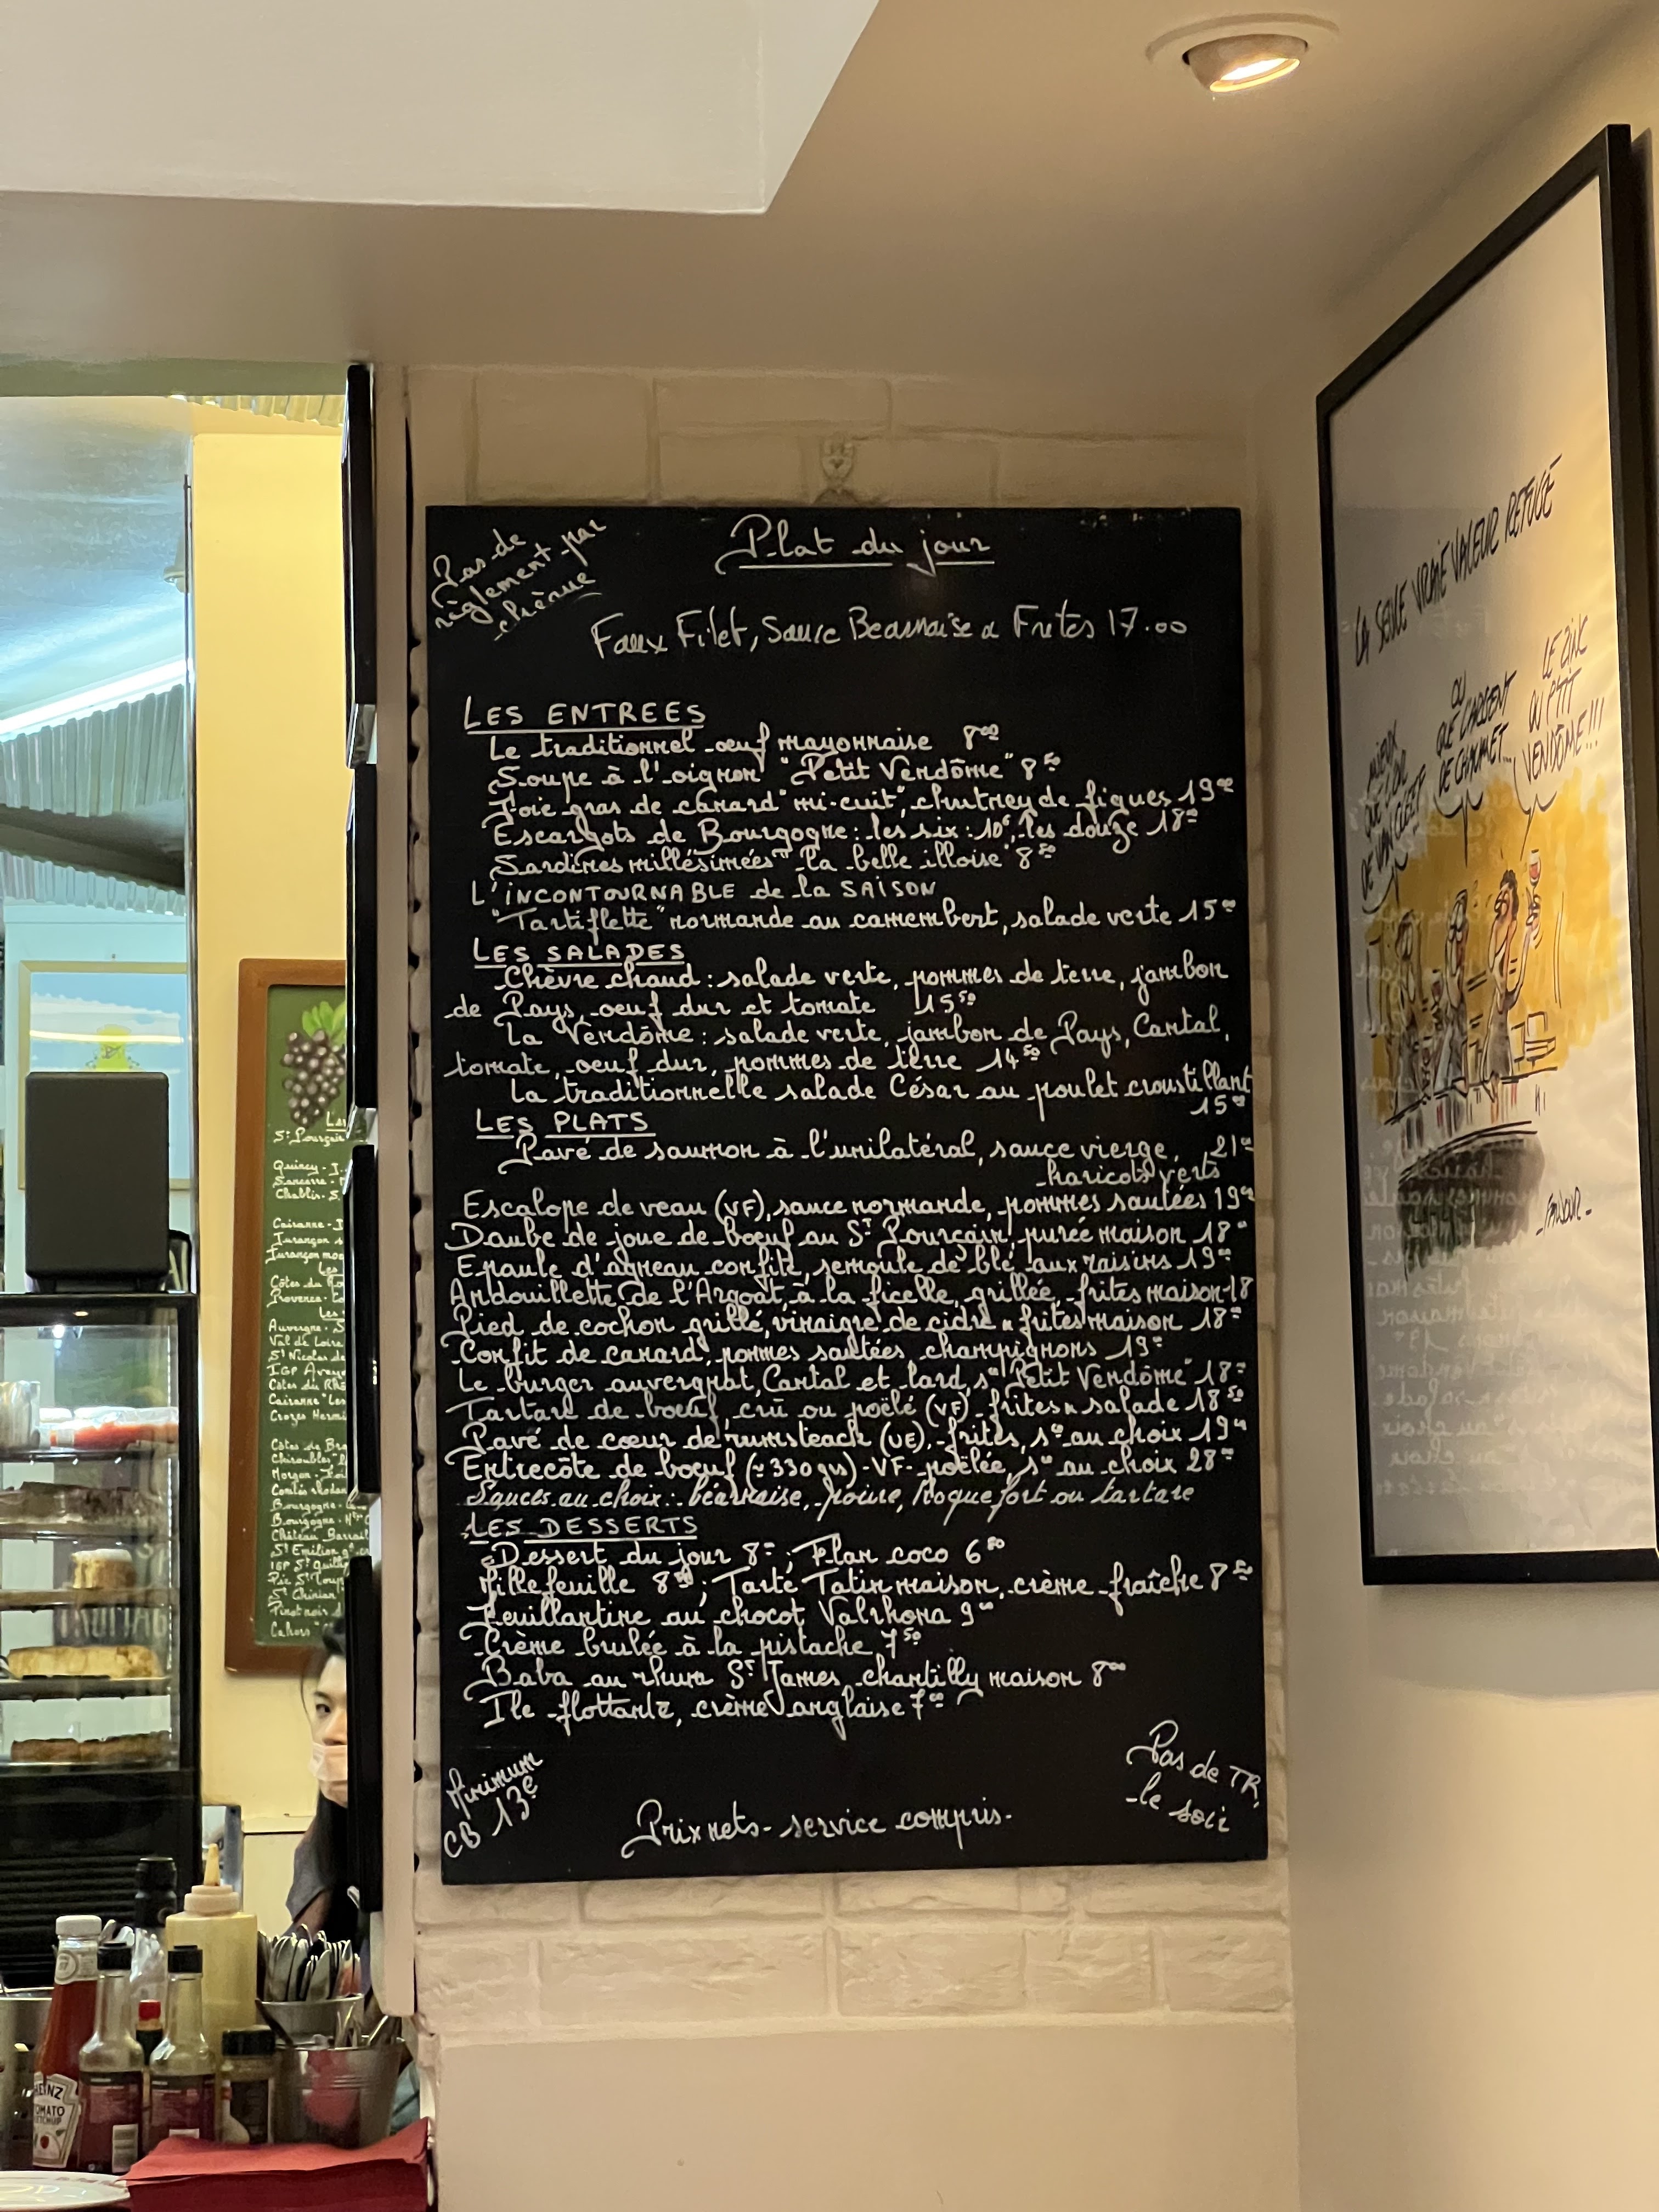 Pas de
règlement par
chèque
Plat du jour
Faux Filet, Sauce Bearnaise & Frites 17.00
LES ENTREES
Le traditionnel oeuf mayonnaise 8,00
Soupe à l'oignon "Petit Vendôme" 8,50
Foie gras de canard "mi-cuit", chutney de figues 19,00
Escargots de Bourgogne : les six : 10€, les douze 18,00
Sardines millésimées "la belle illoise" 8,50
L'INCONTOURNABLE de la SAISON
"Tartiflette" normande au camembert, salade verte 15,00
LES SALADES
Chèvre chaud : salade verte, pommes de terre, jambon
de Pays, oeuf dur et tomate 15,50
La Vendôme : salade verte, jambon de Pays, Cantal,
tomate, oeuf dur, pommes de terre 14,50
La traditionnelle salade César au poulet croustillant
15,00
LES PLATS
Pavé de saumon à l'unilatéral, sauce vierge, 21,00
haricots verts
Escalope de veau (VF), sauce normande, pommes sautées 19,00
Daube de joue de boeuf au St Pourçain, purée maison 18,00
Epaule d'agneau confite, semoule de blé aux raisins 19,00
Andouillette de l'Argoat, à la ficelle, grillée, frites maison 18
Pied de cochon grillé, vinaigre de cidre & frites maison 18,00
Confit de canard, pommes sautées champignons 19,00
Le burger auvergnat, Cantal et lard, sce "Petit Vendôme" 18,00
Tartare de boeuf, crû ou poêlé (VF) frites & salade 18,50
Pavé de coeur de rumsteack (UE), frites, sce au choix 19,00
Entrecôte de boeuf (≃ 330 grs) - VF - poêlée, sce au choix 28,00
Sauces au choix : béarnaise, poivre, Roquefort ou tartare
LES DESSERTS
Dessert du jour 8,00 ; Flan coco 6,00
Millefeuille ; Tarte Tatin maison, crème fraîche 8,50
Feuillantine au chocot Valrhona 9,00
Crème brulée à la pistache 7,50
Baba au rhum St James, chantilly maison 8,00
Ile flottante, crème anglaise 7,00
Minimum
CB 13€
Prix nets - service compris -
Pas de TR,
le soir
LA SEULE VRAIE VALEUR REFUGE
MIEUX
QUE L'OR
DE VAN CLEEF
OU
QUE L'ARGENT
DE CHAUMET...
LE ZINC
DU P'TIT
VENDÔME!!!
St Pourçain
Quincy
Sancerre
Chablis
Cairanne
Jurançon
Jurançon
Les
Côtes du
Provence
Les
Auvergne
Val de Loire
St Nicolas de
IGP
Côtes du
Cairanne
Crozes
Chiroubles
Morgon
Bourgogne
Bourgogne
Château
St Emilion
IGP
Pic St
St Chinian
Pinot noir
Cahors
HEINZ
TOMATO
KETCHUP